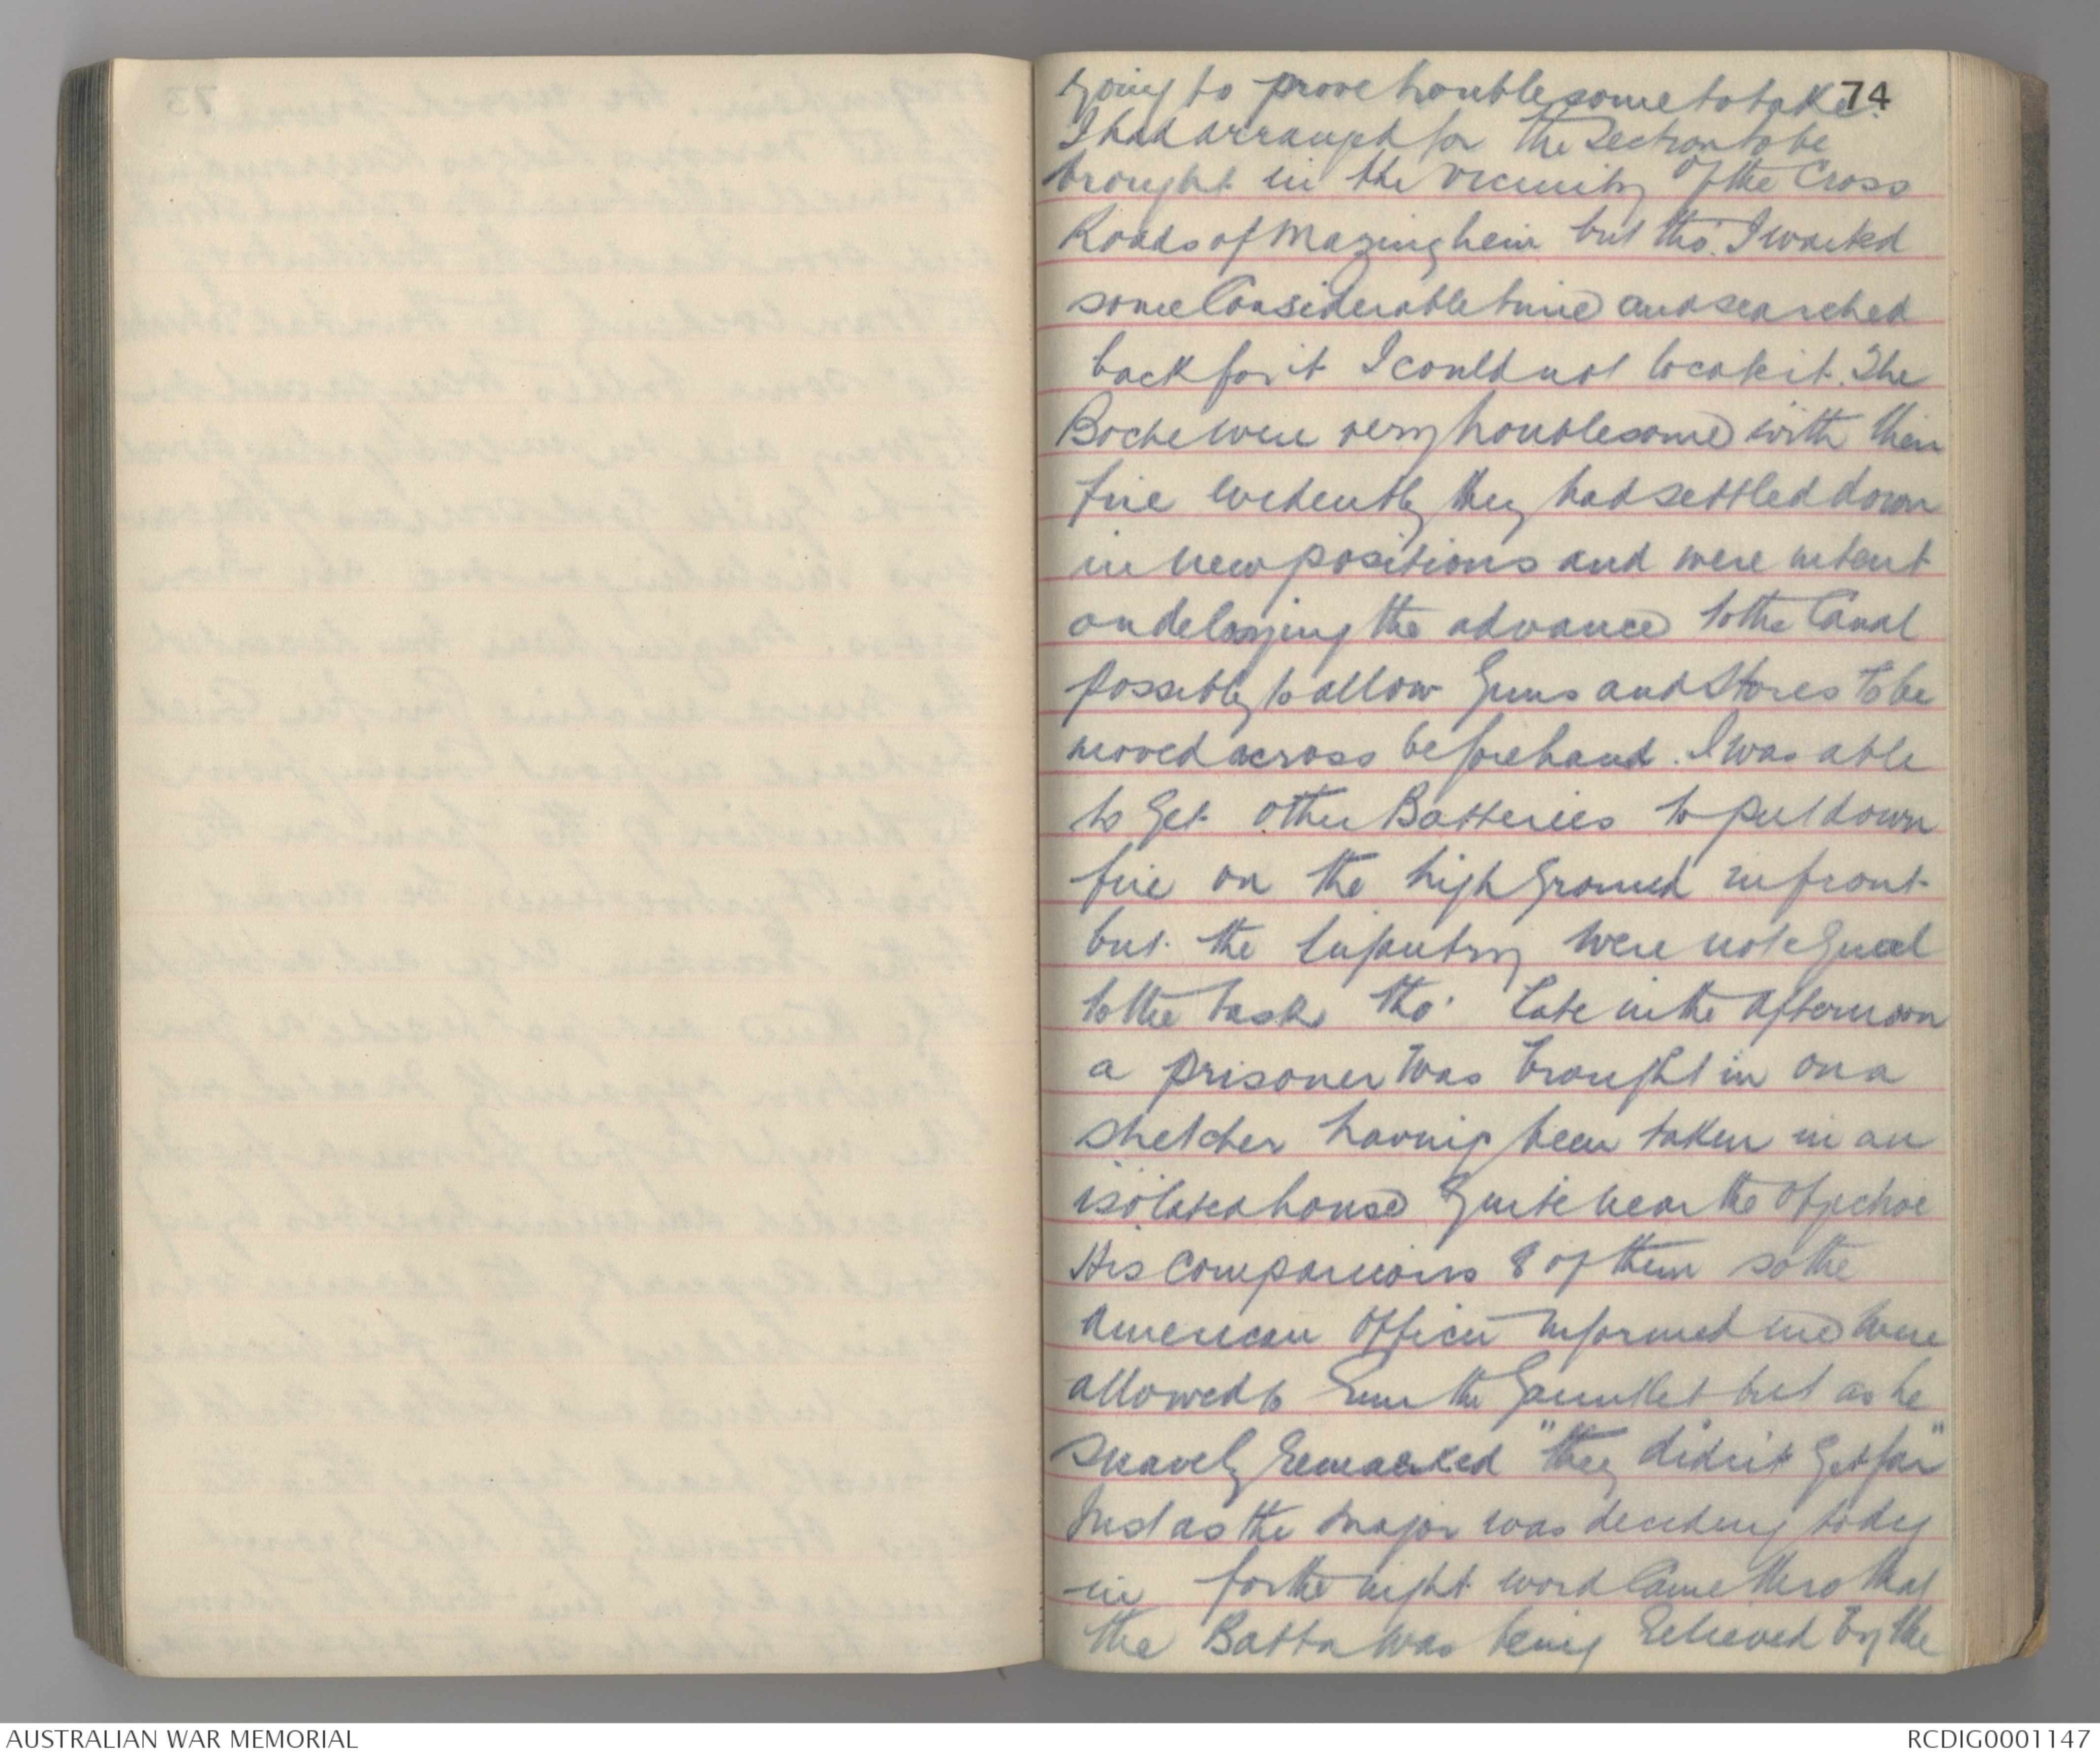 73
74
going to prove troublesome to take.
I had arranged for the Section to be
brought in the vicinity of the Cross
Roads of Mazinghein but tho'. I waited
some Considerable time and searched
back for it I could not locate it. The
Boche were very troublesome with their
fire evidently they had settled down
in new positions and were intent
on delaying the advance to the Canal
possibly to allow Guns and Stores to be
moved across beforehand. I was able
to Get other Batteries to put down
fire on the high Ground in front
but the Infantry were not equal
to the task tho' late in the afternoon
a prisoner was brought in on a
stretcher having been taken in an
isolated house Quite near the Objective
His companions 8 of them so the
American Officer informed me were
allowed to Run the Gauntlet but as he
suavely Remarked "they didn't Get far"
Just as the Major was deciding to dig
in for the night word Came thro that
the Battn was being Relieved by the
AUSTRALIAN WAR MEMORIAL
RCDIG0001147